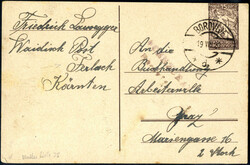 Friedrich Lauregger
Waidisch Post
Ferlach
Kärnten
BOROVLJE
19 VII 20
An die
Buchhandlung
Arbeiterwille
Graz
Mariengasse 16
2. Stock